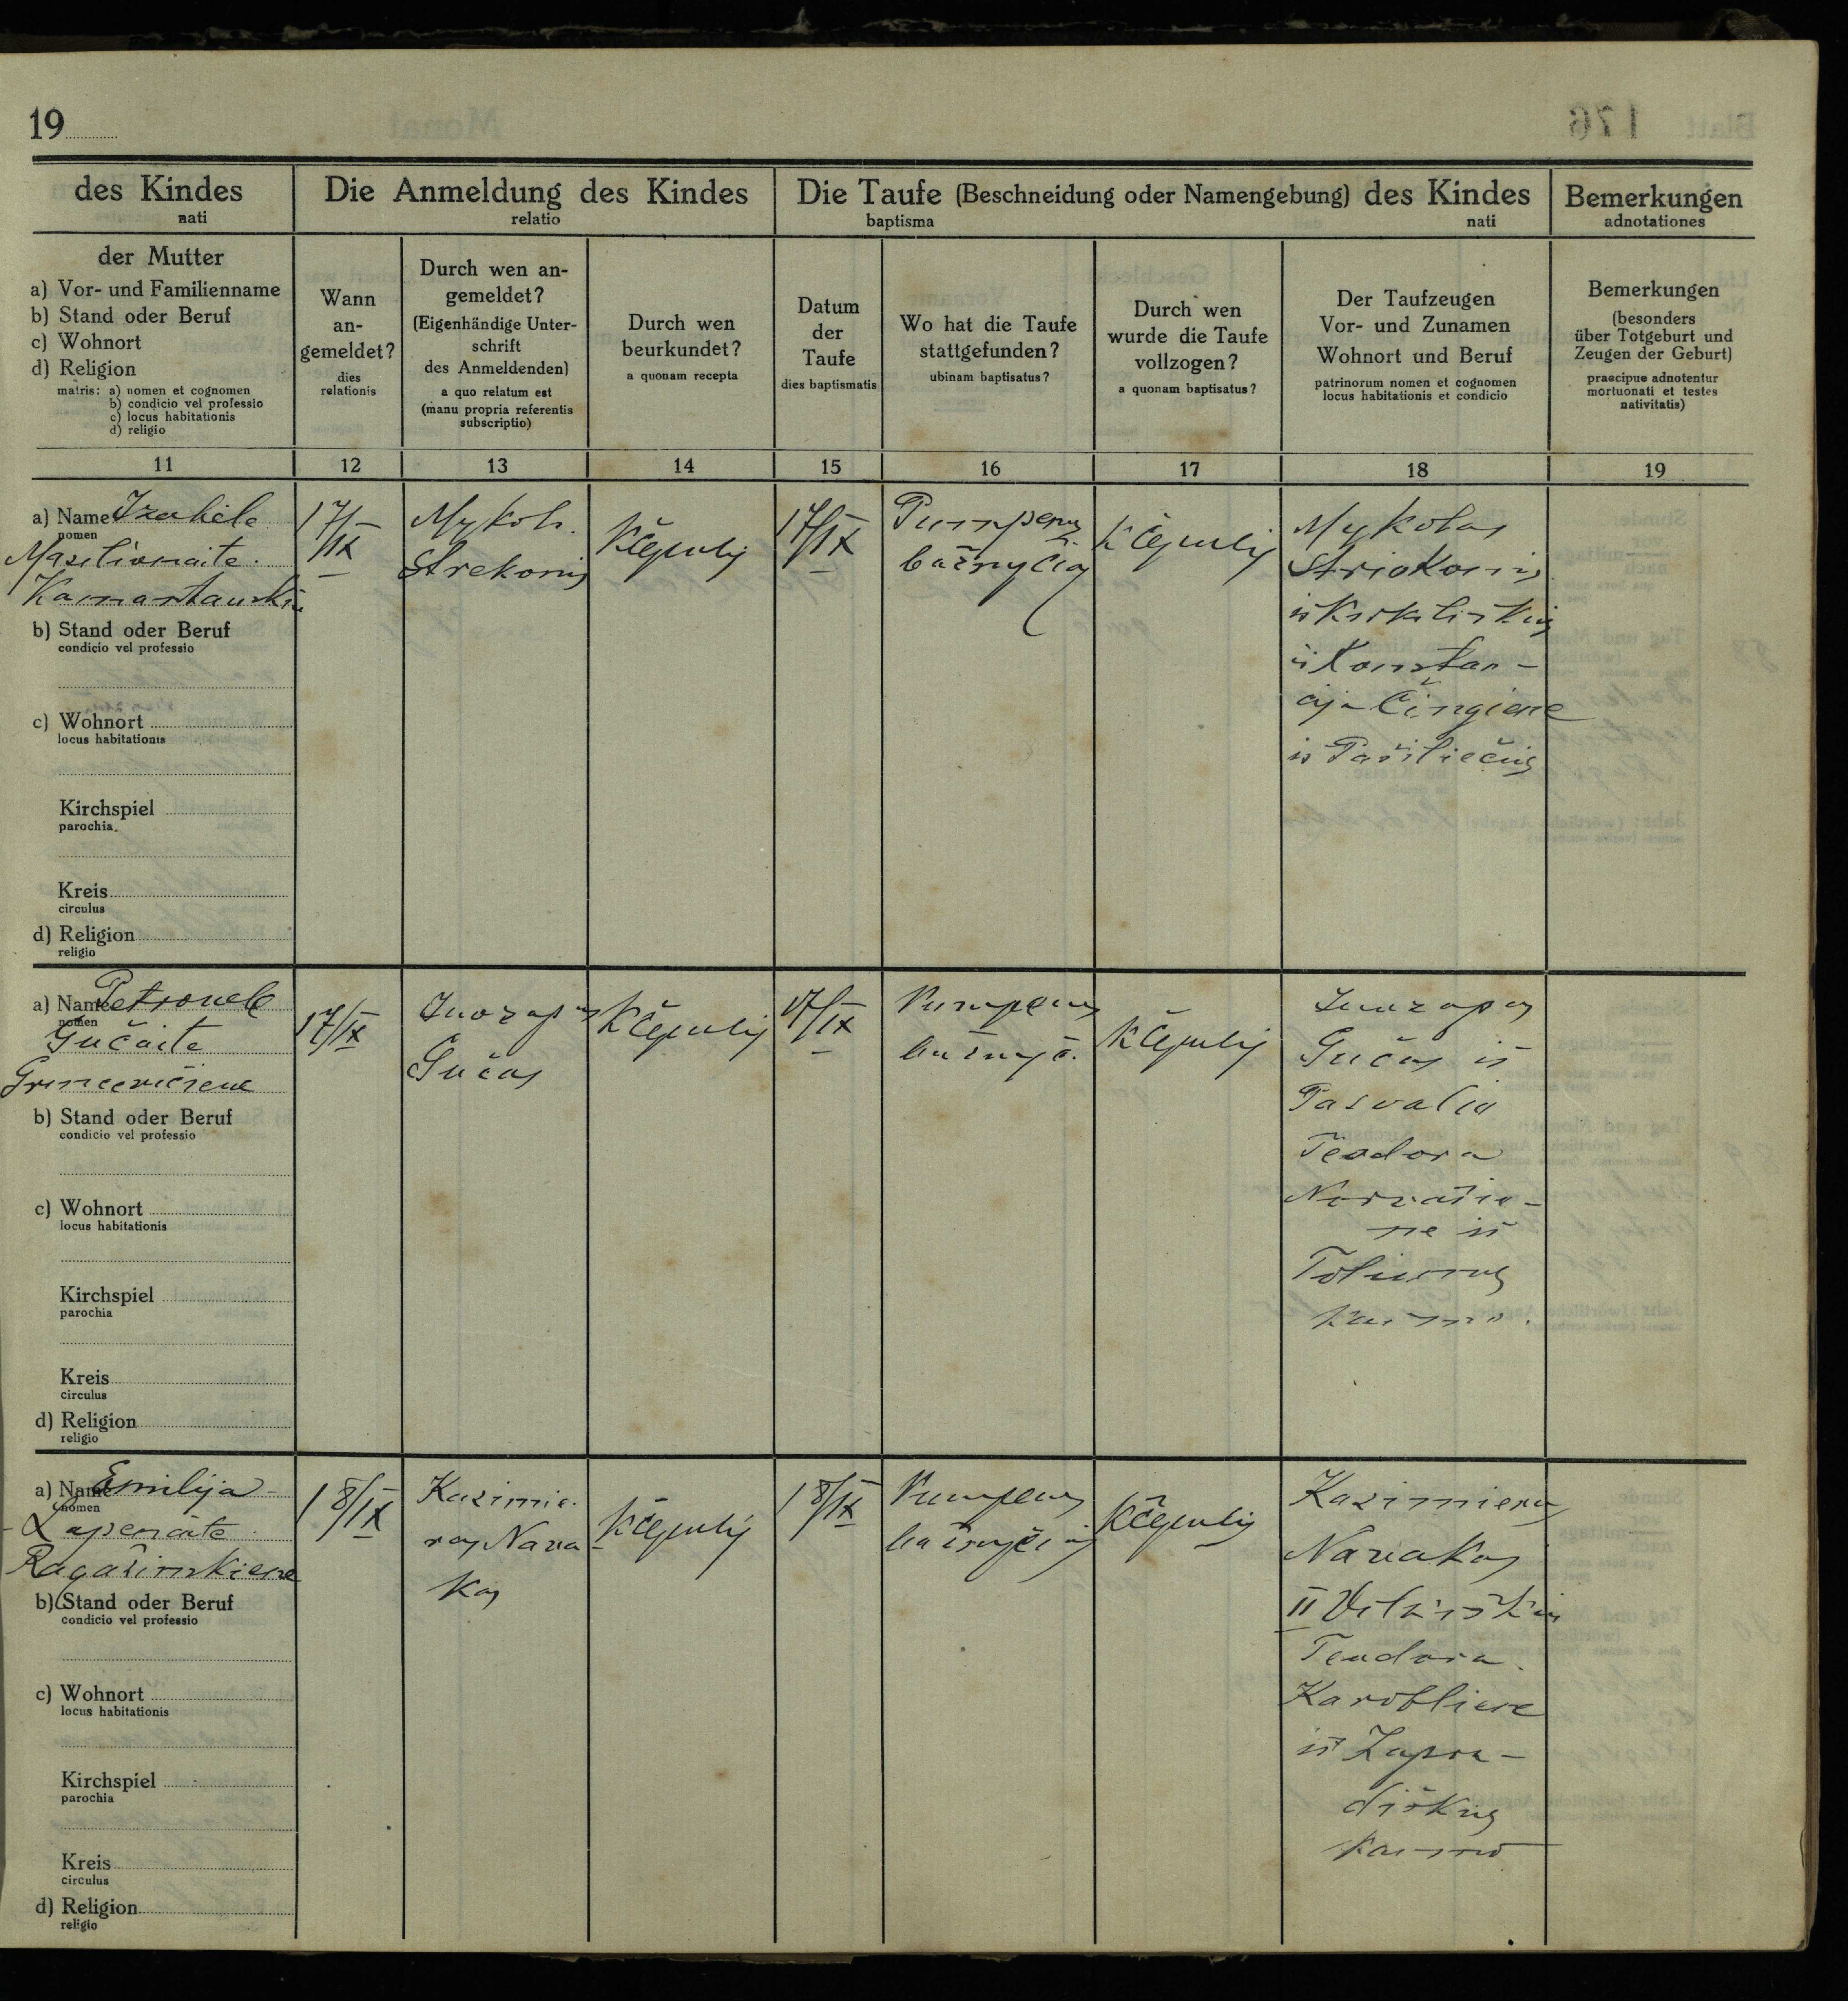 19
des Kindes
nati
Die Anmeldung des Kindes
relatio
Die Taufe (Beschneidung oder Namengebung) des Kindes
baptisma nati
Bemerkungen
adnotationes
der Mutter
a) Vor- und Familienname
b) Stand oder Beruf
c) Wohnort
d) Religion
matris: a) nomen et cognomen
b) condicio vel professio
c) locus habitationis
d) religio
Wann
an-
gemeldet?
dies
relationis
Durch wen an-
gemeldet?
(Eigenhändige Unter-
schrift
des Anmeldenden)
a quo relatum est
(manu propria referentis
subscriptio)
Durch wen
beurkundet?
a quonam recepta
Datum
der
Taufe
dies baptismatis
Wo hat die Taufe
stattgefunden?
ubinam baptisatus?
Durch wen
wurde die Taufe
vollzogen?
a quonam baptisatus?
Der Taufzeugen
Vor- und Zunamen
Wohnort und Beruf
patrinorum nomen et cognomen
locus habitationis et condicio
Bemerkungen
(besonders
über Totgeburt und
Zeugen der Geburt)
praecipue adnotentur
mortuonati et testes
nativitatis)
11 12 13 14 15 16 17 18 19
a) Name Izabele
nomen
Masilionaite
b) Stand oder Beruf
condicio vel professio
c) Wohnort
locus habitationis
Kirchspiel
parochia.
Kreis
circulus
d) Religion
religio
17/IX
Mykol.
Strekonis
K Čepulis
17/IX
Pumpenų
bažnyčioj
K Čepulis
Mykolas
Striokonis
iš
ir Konstan-
cija Čingiene
iš
a) Name Petronele
nomen
Gučaite
Grincevičiene
b) Stand oder Beruf
condicio vel professio
c) Wohnort
locus habitationis
Kirchspiel
parochia
Kreis
circulus
d) Religion
religio
17/IX
Juozapas
Gučas
K Čepulis
17/IX
Pumpenų
bažnyč.
K Čepulis
Juozapas
Gučas iš
Pasvalio
Teodora
ne iš
Toliunų
kaimo.
a) Name Emilija
nomen
Lapenaite
Ragažinskiene
b) Stand oder Beruf
condicio vel professio
c) Wohnort
locus habitationis
Kirchspiel
parochia
Kreis
circulus
d) Religion
religio
18/IX
Kazimie-
ras Nava
kas
K Čepulis
18/IX
Pumpenų
bažnyčioj
K Čepulis
Kazimieras
Navakas
Teodora
Karobliene
iš Zapra-
diškių
kaimo